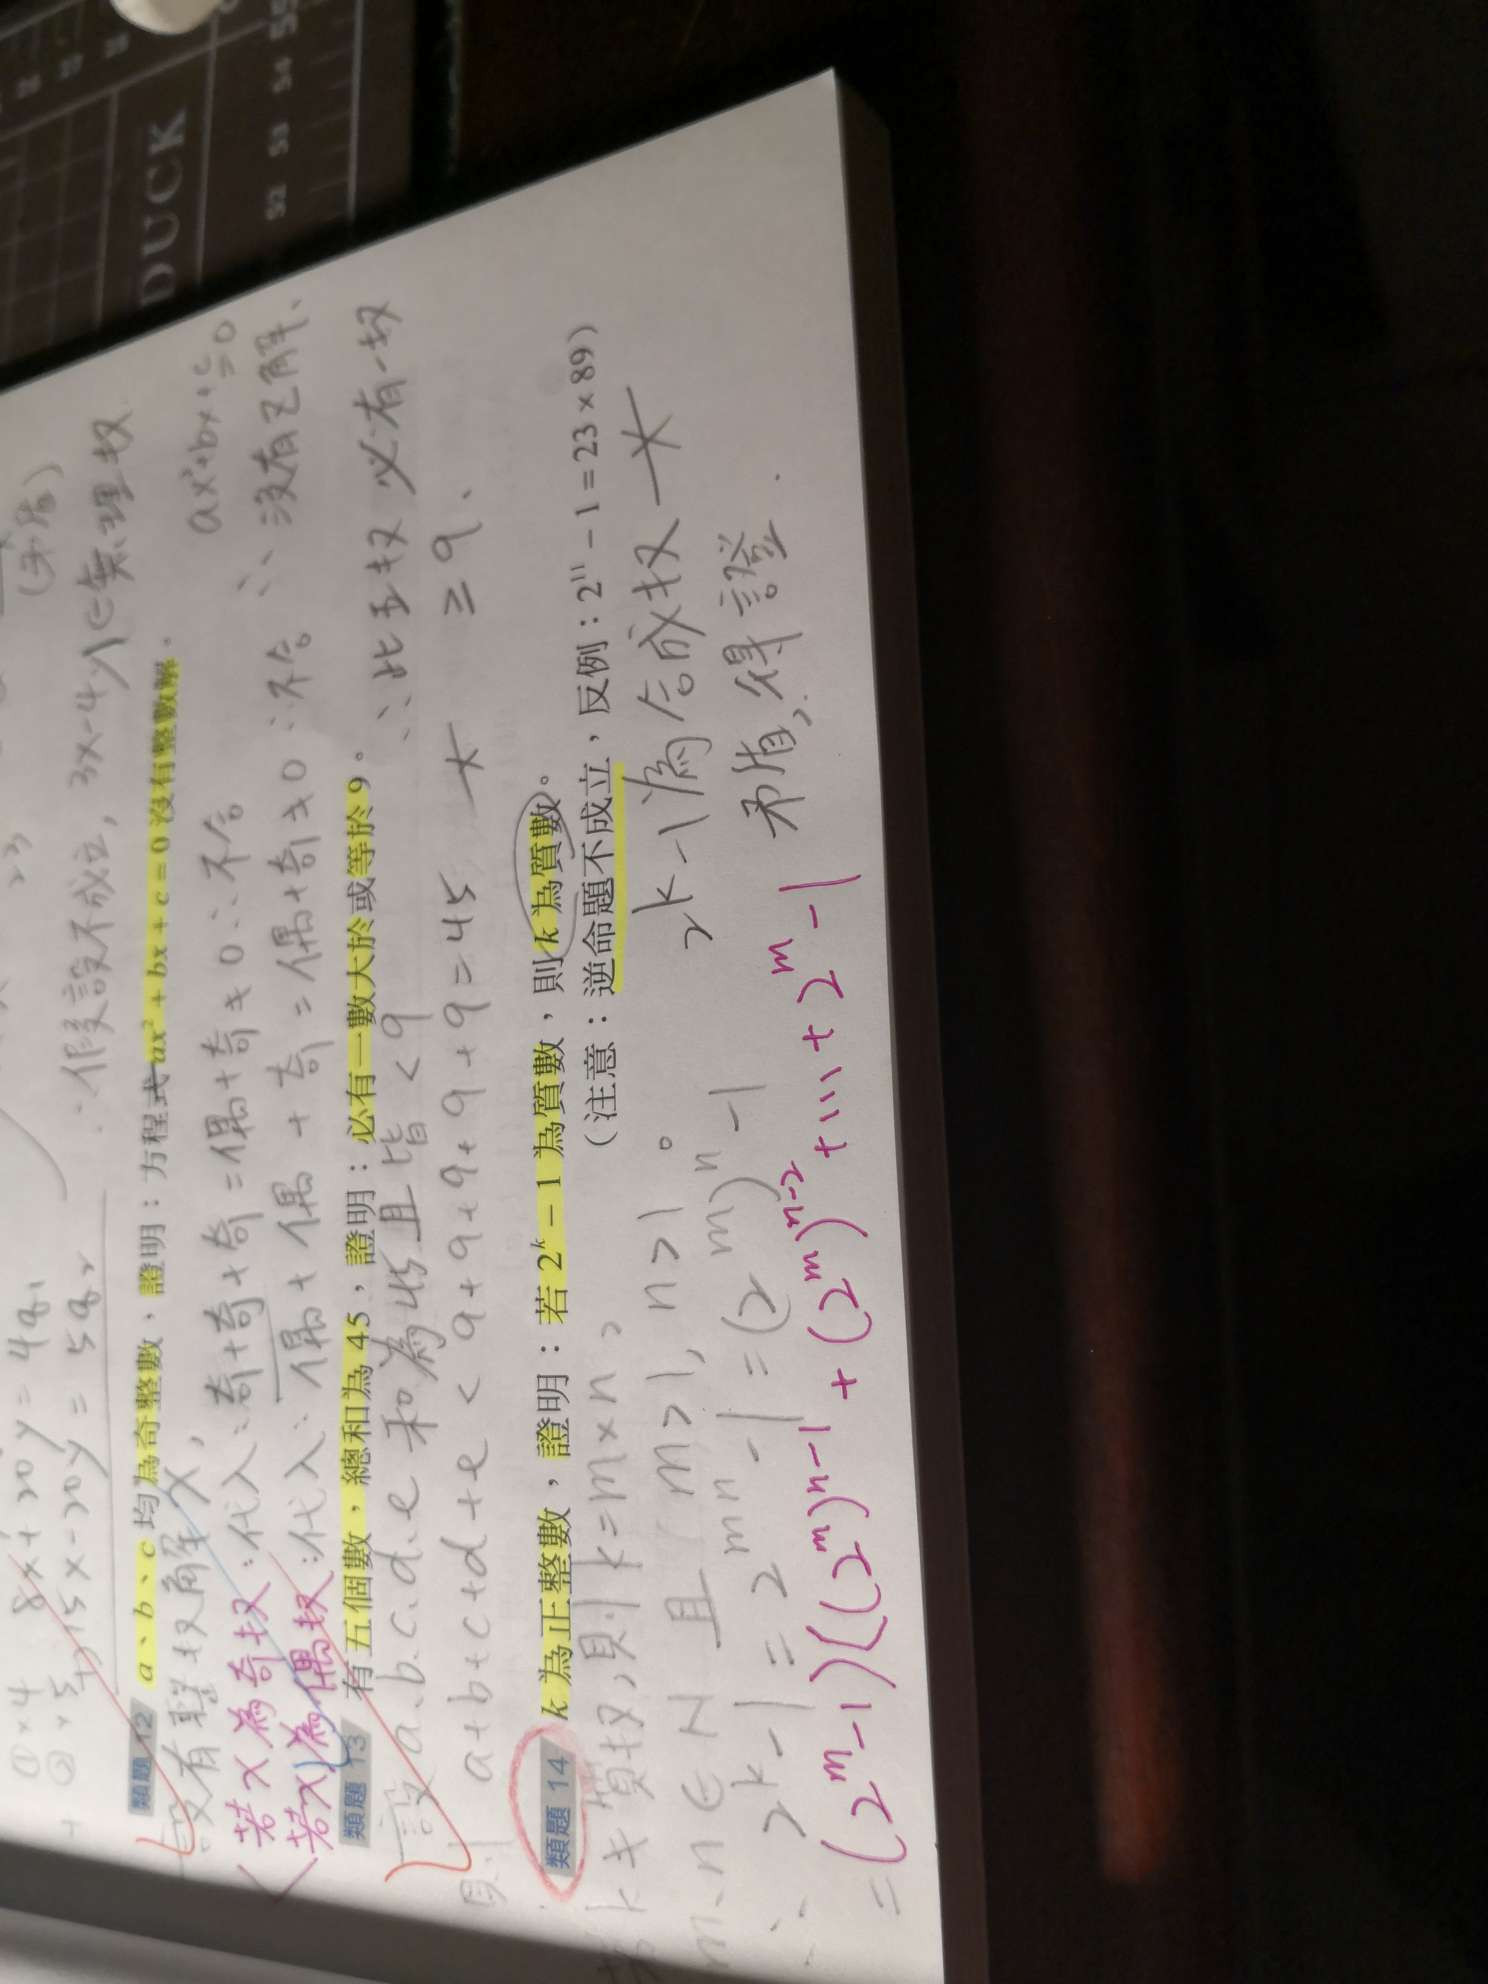 DUCK
52 53 54 55
①×4 8x+20y=4q₁
②×5 +) 15x-20y=5q₂
∴假設不成立, 3x-4y∈無理数
類題 12 a、b、c 均為奇整數,證明:方程式 ax²+bx+c=0 沒有整數解。
設有整数解x,
ax²+bx+c=0
若x為奇数:代入:奇+奇+奇=偶+奇≠0∴不合
若x為偶数:代入:偶+偶+奇=偶+奇≠0∴不合 ∴沒有整解、
類題 13 有五個數,總和為 45,證明:必有一數大於或等於 9。
設a.b.c.d.e 和為45且皆<9 ∴此五数必有一数
則 a+b+c+d+e < 9+9+9+9+9=45 ≥9、
類題 14 k 為正整數,證明:若 2ᵏ-1 為質數,則 k 為質數。
(注意:逆命題不成立,反例:2¹¹-1=23×89)
k≠質数,則k=m×n,
m、n∈N 且 m>1, n>1。 2ᵏ-1為合成数
∴ 2ᵏ-1=2ᵐⁿ-1=(2ᵐ)ⁿ-1 矛盾,得證.
=(2ᵐ-1)((2ᵐ)ⁿ⁻¹+(2ᵐ)ⁿ⁻²+…+2ᵐ-1